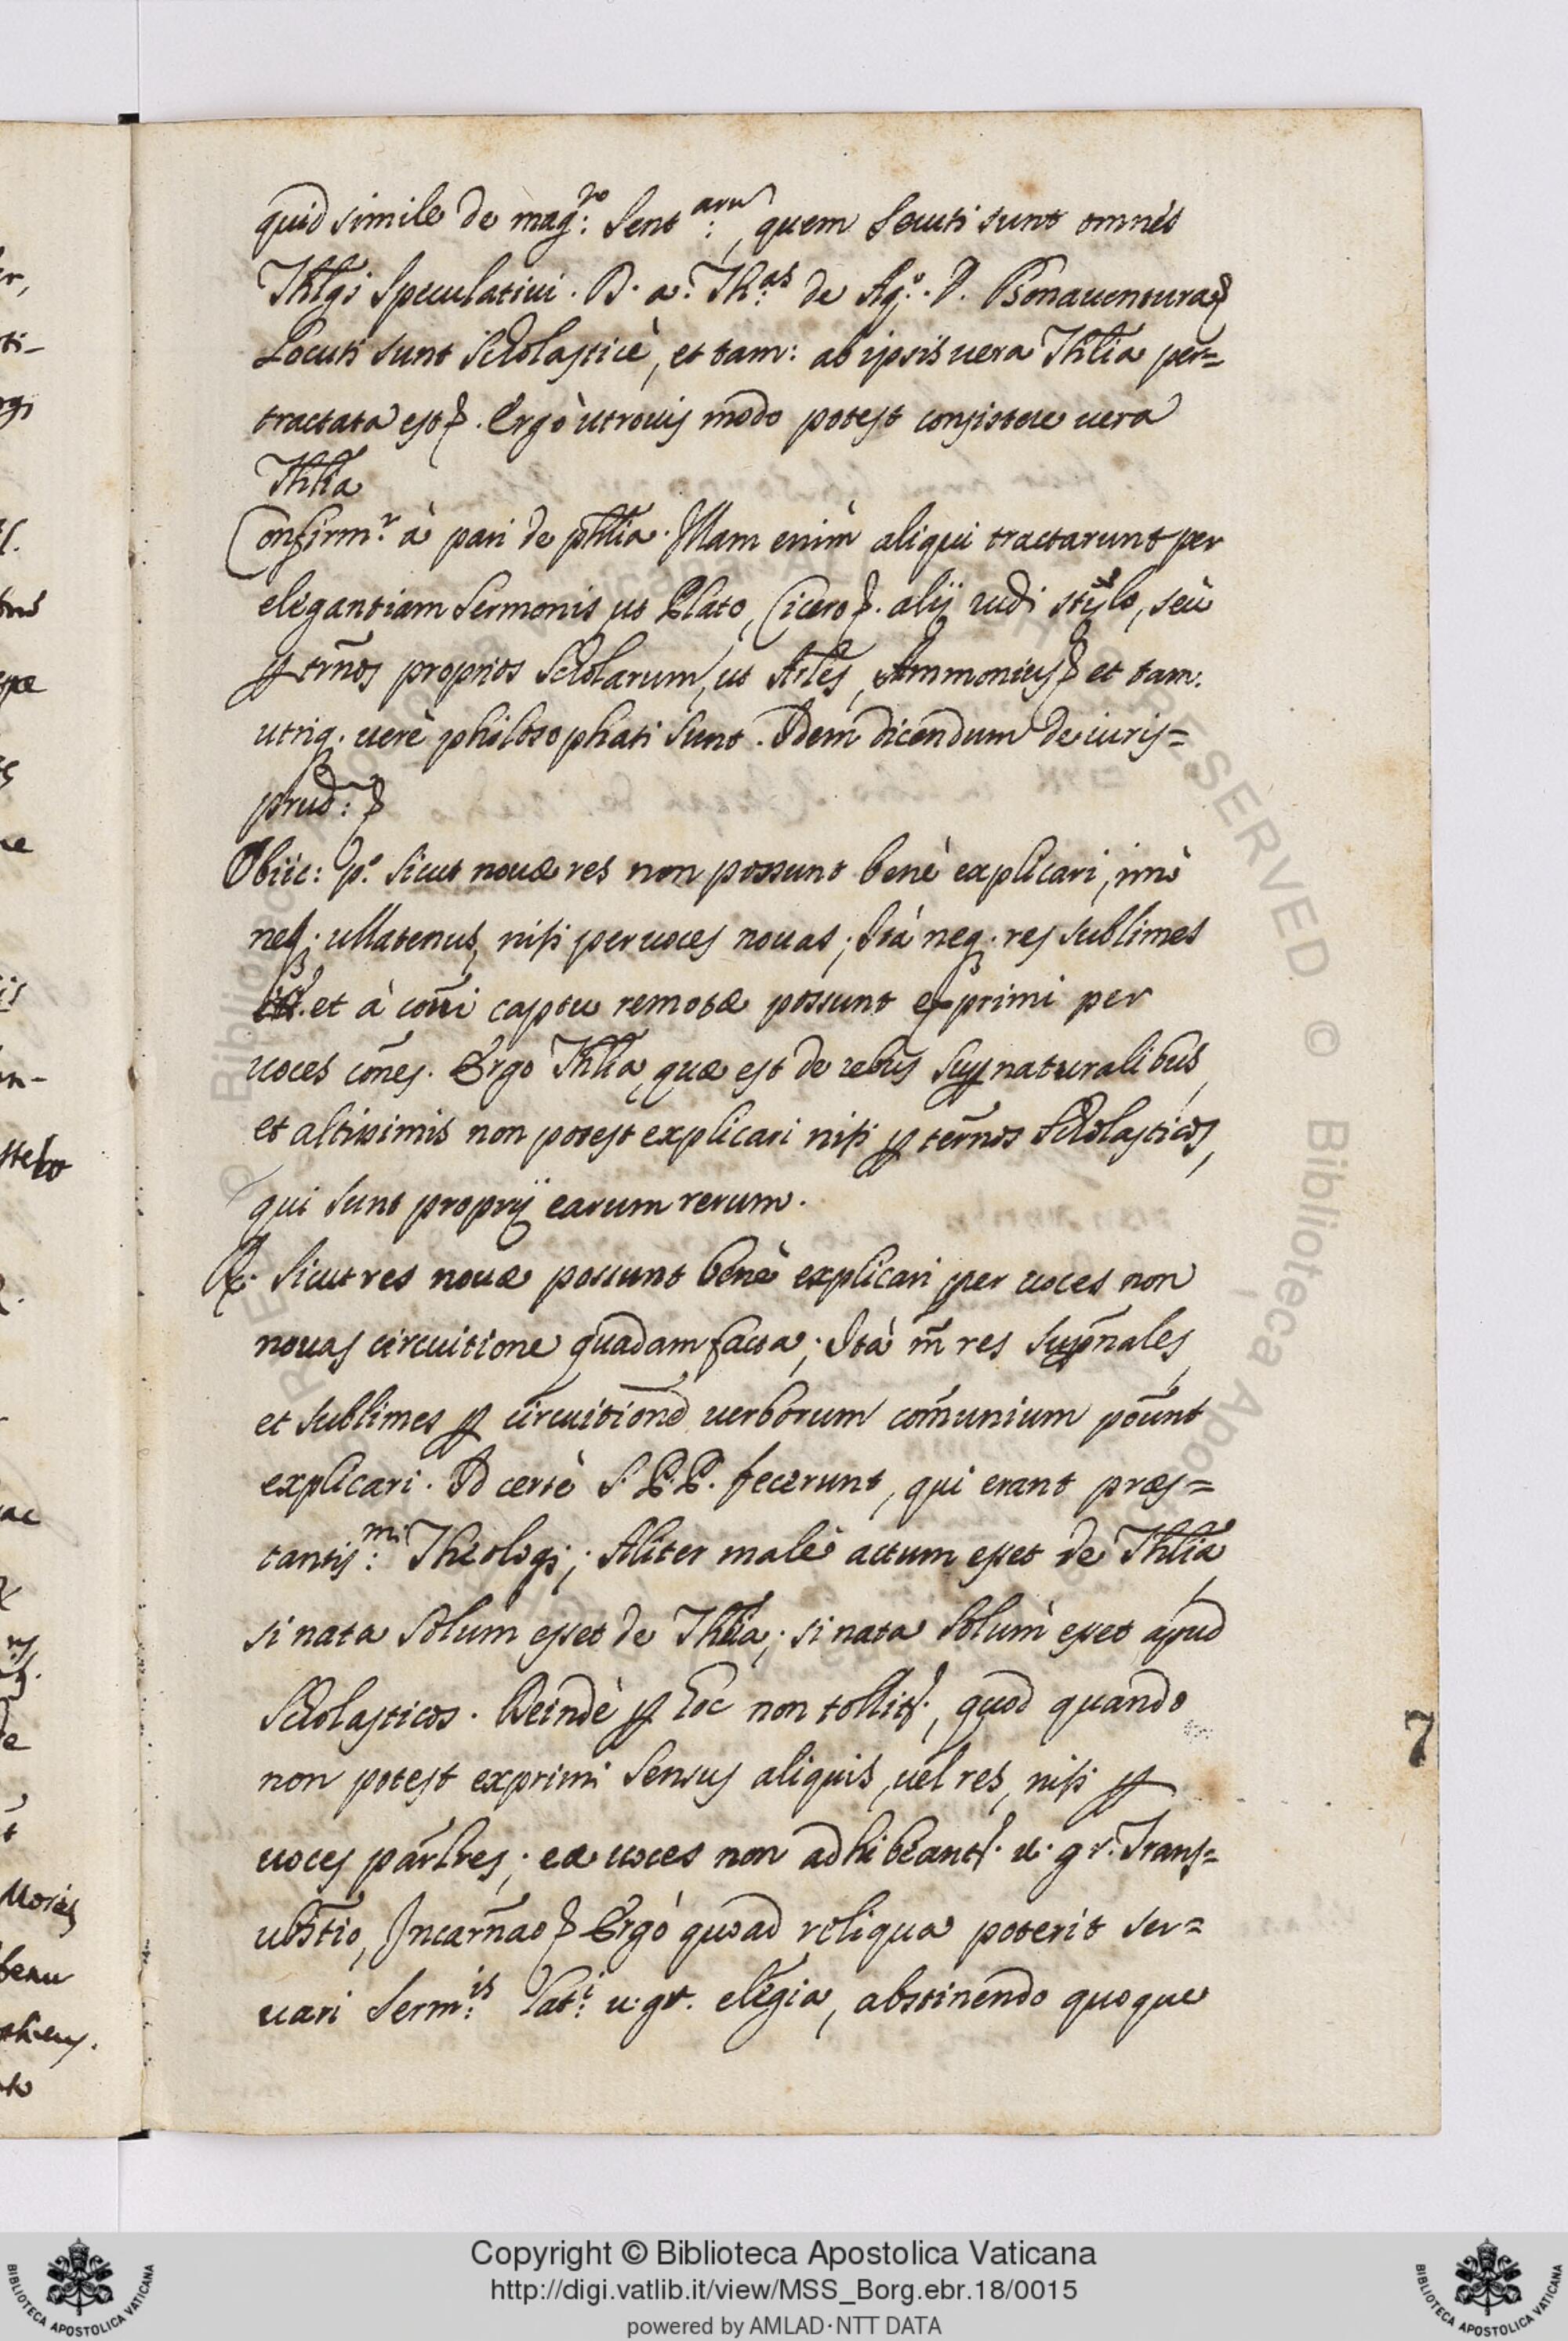 quid simile de mag:ro Sent:arum, quem secuti sunt omnes
Thlgi Speculatiui. D. a. Th:as de Aq:o. D. Bonauentura &
Locuti sunt Scholasticè, et tam: ab ipsis uera Thlia per=
tractata est &. Ergò utrouis modo potest consistere uera
Thlia
Confirm:r à pari de phlia. Illam enim aliqui tractarunt per
elegantiam sermonis ut Plato, Cicero &. alij rudi stylo, seù
p trm̃os proprios Scholarum, ut Arles, Ammonius & et tam.
utriq. uerè philosophati sunt. Idem dicendum de iuris=
prud: &
Obiic: p.o Sicut nouæ res non possunt benè explicari, imò
neq; ullatenus, nisi per uoces nouas; Ità neq; res sublimes
et à com̃i captu remotæ possunt exprimi per
uoces com̃es. Ergo Thlia, quæ est de rebus supnaturalibus,
et altissimis non potest explicari nisi p term̃os Scholasticos,
qui sunt proprij earum rerum.
R. Sicut res nouæ possunt benè explicari per uoces non
nouas circuitione quadam facta; Ità m̃ res supñales,
et sublimes p circuitionẽ uerborum com̃unium poũnt
explicari. Id certè S. P.P. fecerunt, qui erant præs=
tantis:mi Theologi; Aliter malè actum esset de Thlia,
si nata solum esset de Thlia; si nata solum esset apud
Scholasticos. Deindè p hoc non tollit.r, quod quando
non potest exprimi sensus aliquis, uel res, nisi p
uoces parlres; eæ uoces non adhibeant.r u. gr. Trans=
ubstio, Incarñao & Ergò quoad reliqua poterit ser=
uari Serm:is Lat:i u. gr. elegia, abstinendo quoque
7
Copyright © Biblioteca Apostolica Vaticana
http://digi.vatlib.it/view/MSS_Borg.ebr.18/0015
powered by AMLAD·NTT DATA